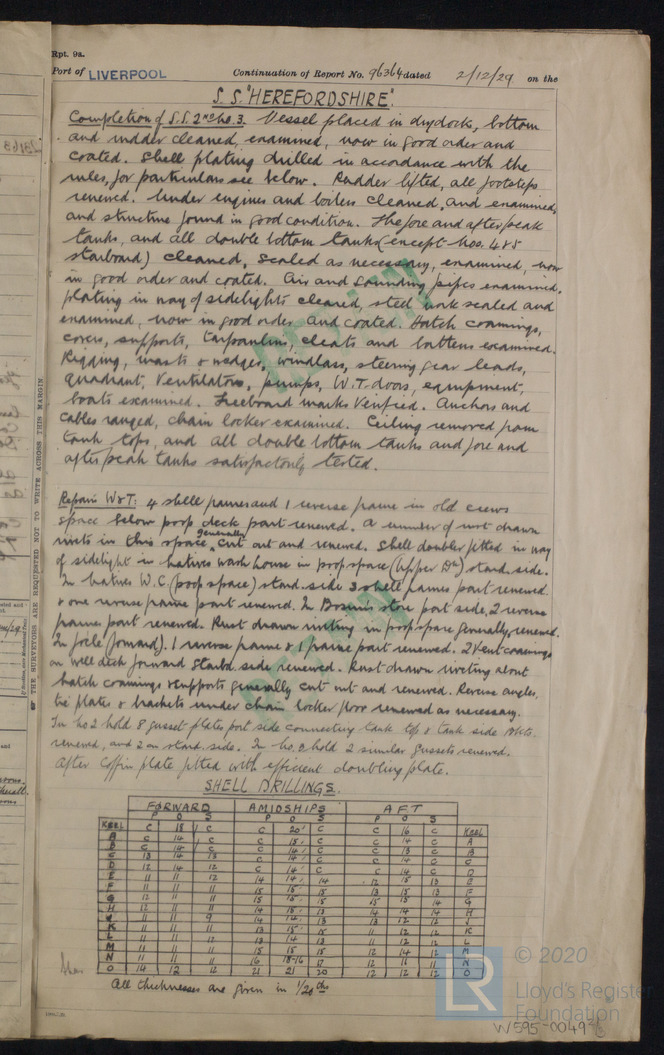 Rpt. 9a.
Port of LIVERPOOL Continuation of Report No. 96364 dated 2/12/29 on the
S.S. "HEREFORDSHIRE".
Completion of S.S. 2nd No. 3. Vessel placed in drydock, bottom
and rudder cleaned, examined, now in good order and
coated. Shell plating drilled in accordance with the
rules, for particulars see below. Rudder lifted, all footsteps
renewed. Under engines and boilers cleaned, and examined,
and structure found in good condition. The fore and after peak
tanks, and all double bottom tanks (except Nos. 4 & 5
starboard) cleaned, scaled as necessary, examined, now
in good order and coated. Air and sounding pipes examined.
Plating in way of sidelights cleaned, steel work scaled and
examined, now in good order and coated. Hatch coamings,
covers, supports, tarpaulins, cleats and battens examined.
Rigging, masts & wedges, windlass, steering gear leads,
quadrant, ventilators, pumps, W.T. doors, equipment,
boats examined. Freeboard marks verified. Anchors and
cables ranged, chain locker examined. Ceiling removed from
tank tops, and all double bottom tanks and fore and
after peak tanks satisfactorily tested.
Repairs W&T: 4 shell frames and 1 reverse frame in old crews
space below poop deck part renewed. A number of rust drawn
rivets in this space generally cut out and renewed. Shell doubler fitted in way
of sidelight in natives wash house in poop space (upper Dk) starb. side.
In natives W.C. (poop space) starb. side 3 shell frames part renewed
& one reverse frame part renewed. In Bosun's store port side, 2 reverse
frames part renewed. Rust drawn riveting in poop space generally renewed.
In focle (forward). 1 reverse frame & 1 frame part renewed. 2 Vent coamings
on well deck forward starbd. side renewed. Rust drawn riveting about
hatch coamings & supports generally cut out and renewed. Reverse angles,
tie plates & brackets under chain locker floor renewed as necessary.
In No 2 hold 8 gusset plates port side connecting tank top & tank side bkts.
renewed, and 2 on starb. side. In No. hold 2 similar gussets renewed.
After coffin plate fitted with efficient doubling plate.
SHELL DRILLINGS.
FORWARD AMIDSHIPS AFT
P O S P O S P O S
KEEL C 18 C C 20 C C 16 C KEEL
A C 14 C C 15 C C 14 C A
B C 14 C C 14 C C 13 C B
C 13 14 13 C 14 C C 14 C C
D 12 14 12 C 14 C C 14 C D
E 11 11 12 14 14 14 12 15 13 E
F 11 11 11 15 15 15 13 15 13 F
G 12 11 11 15 15 15 15 15 14 G
H 12 11 11 14 15 13 14 14 14 H
J 11 11 9 14 14 13 13 12 12 J
K 11 11 11 13 15 15 11 12 12 K
L 11 11 12 13 14 13 11 12 12 L
M 11 11 11 15 15 15 12 14 12 M
N 11 11 11 16 18-16 17 12 11 11 N
O 14 12 12 21 21 20 12 12 12 O
All thicknesses are given in 1/20 ths
THE SURVEYORS ARE REQUESTED NOT TO WRITE ACROSS THIS MARGIN
© 2020
LR Lloyd's Register
Foundation
W595-0049